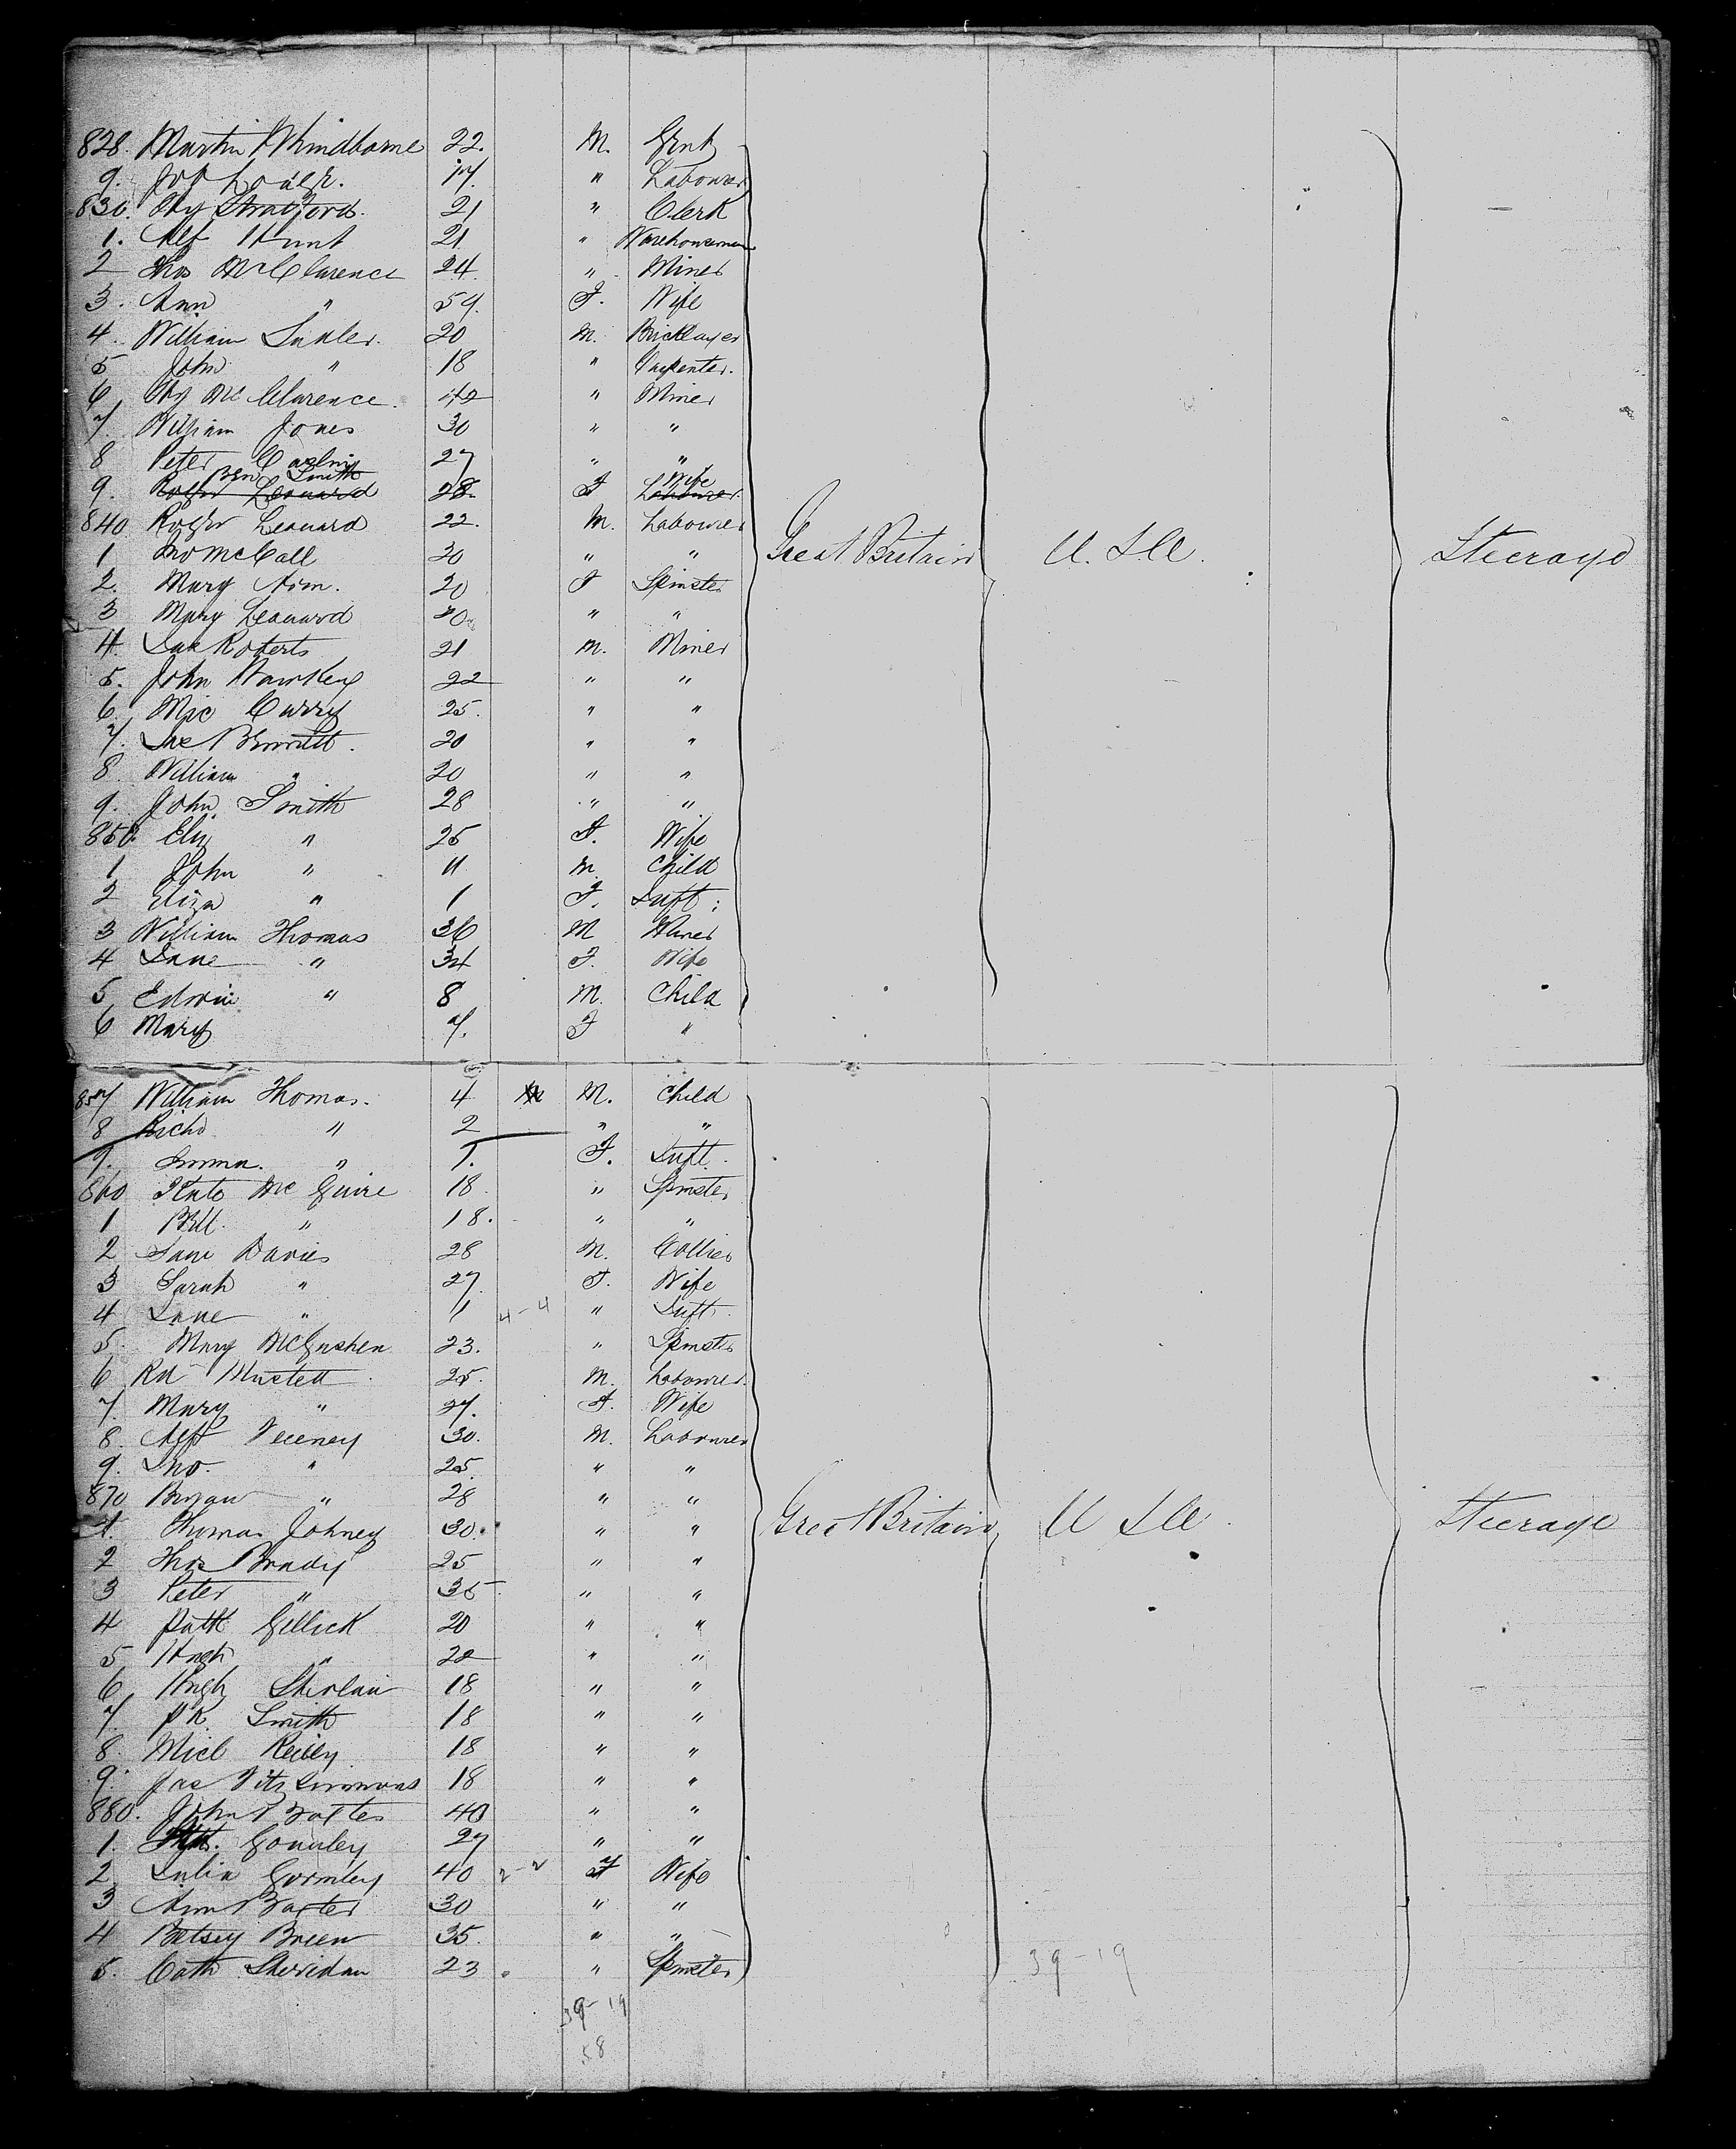 828. Martin Mindborne 22. M. Gent
9. Labourer
830. Hy Stratford. 21 " Clerk
1. Alf Hunt 21 " Warehouseman
2 Thos McClarence 24. " Miner
3. Ann " 54. F. Wife
4. William 20 M. Bricklayer
5 John " 18 " Carpenter.
6 Hy McClarence. 42 " Miner
7. William Jones 30 " "
8 Peter 27 " "
9. Ben Smith Roger Leonard 28. F Wife Labourer.
840 Roger Leonard 22. M. Labourer
1 Jno McCall 20 " "
2. Mary Ann. 20 F Spinster
3 Mary Leonard 20. " "
4. Jas Roberts 21 M. Miner
5. John Hawkey 22 " "
6. Mic Curry 25. " "
7. Jas Bennett. 20 " "
8. William " 20 " "
9. John Smith 28 " "
850. Eliz " 25 F. Wife
1 John " 11 M. Child
2 Eliza " 1 F. Inft.
3 William Thomas 36 M Miner
4 Jane " 34 F. Wife
5 Edwin " 8 M. Child
6 Mary 7. F "
Great Britain U. S. A. Steerage
857 William Thomas. 4 M. Child
8 Richd " 2 " "
9. Emma. " 1. F. Inft.
860 Kate McGuire 18. " Spinster
1 " 18. " "
2 Davies 28 M. Collier
3 Sarah " 27. F. Wife
4 Jane " 11 4-4 " Inft.
5. Mary McGushen 23. " Spinster
6 Rd 25. M. Labourer.
7. Mary " 27. F. Wife
8. Alf Feeney 30. M. Labourer
9. Jno. " 25. " "
870 Bryan " 28 " "
1. Thomas Johney 30. " "
2 Thos Brady 25 " "
3 Peter " 35 " "
4 Patk Gillick 20 " "
5 Hugh " 22 " "
6 Hugh 18 " "
7. Pk. Smith 18 " "
8. Micl Reilly 18 " "
9. Jas Fitzsimmons 18 " "
880. John Baxter 40 " "
1. Gormley 27 " "
2 Julia Gormley 40 2-2 F Wife
3 Ann Baxter 30 " "
4 Betsey Breen 35. " "
5. Cath Sheridan 23 " Spinster
Great Britain U S A Steerage
39-19
39-19
58